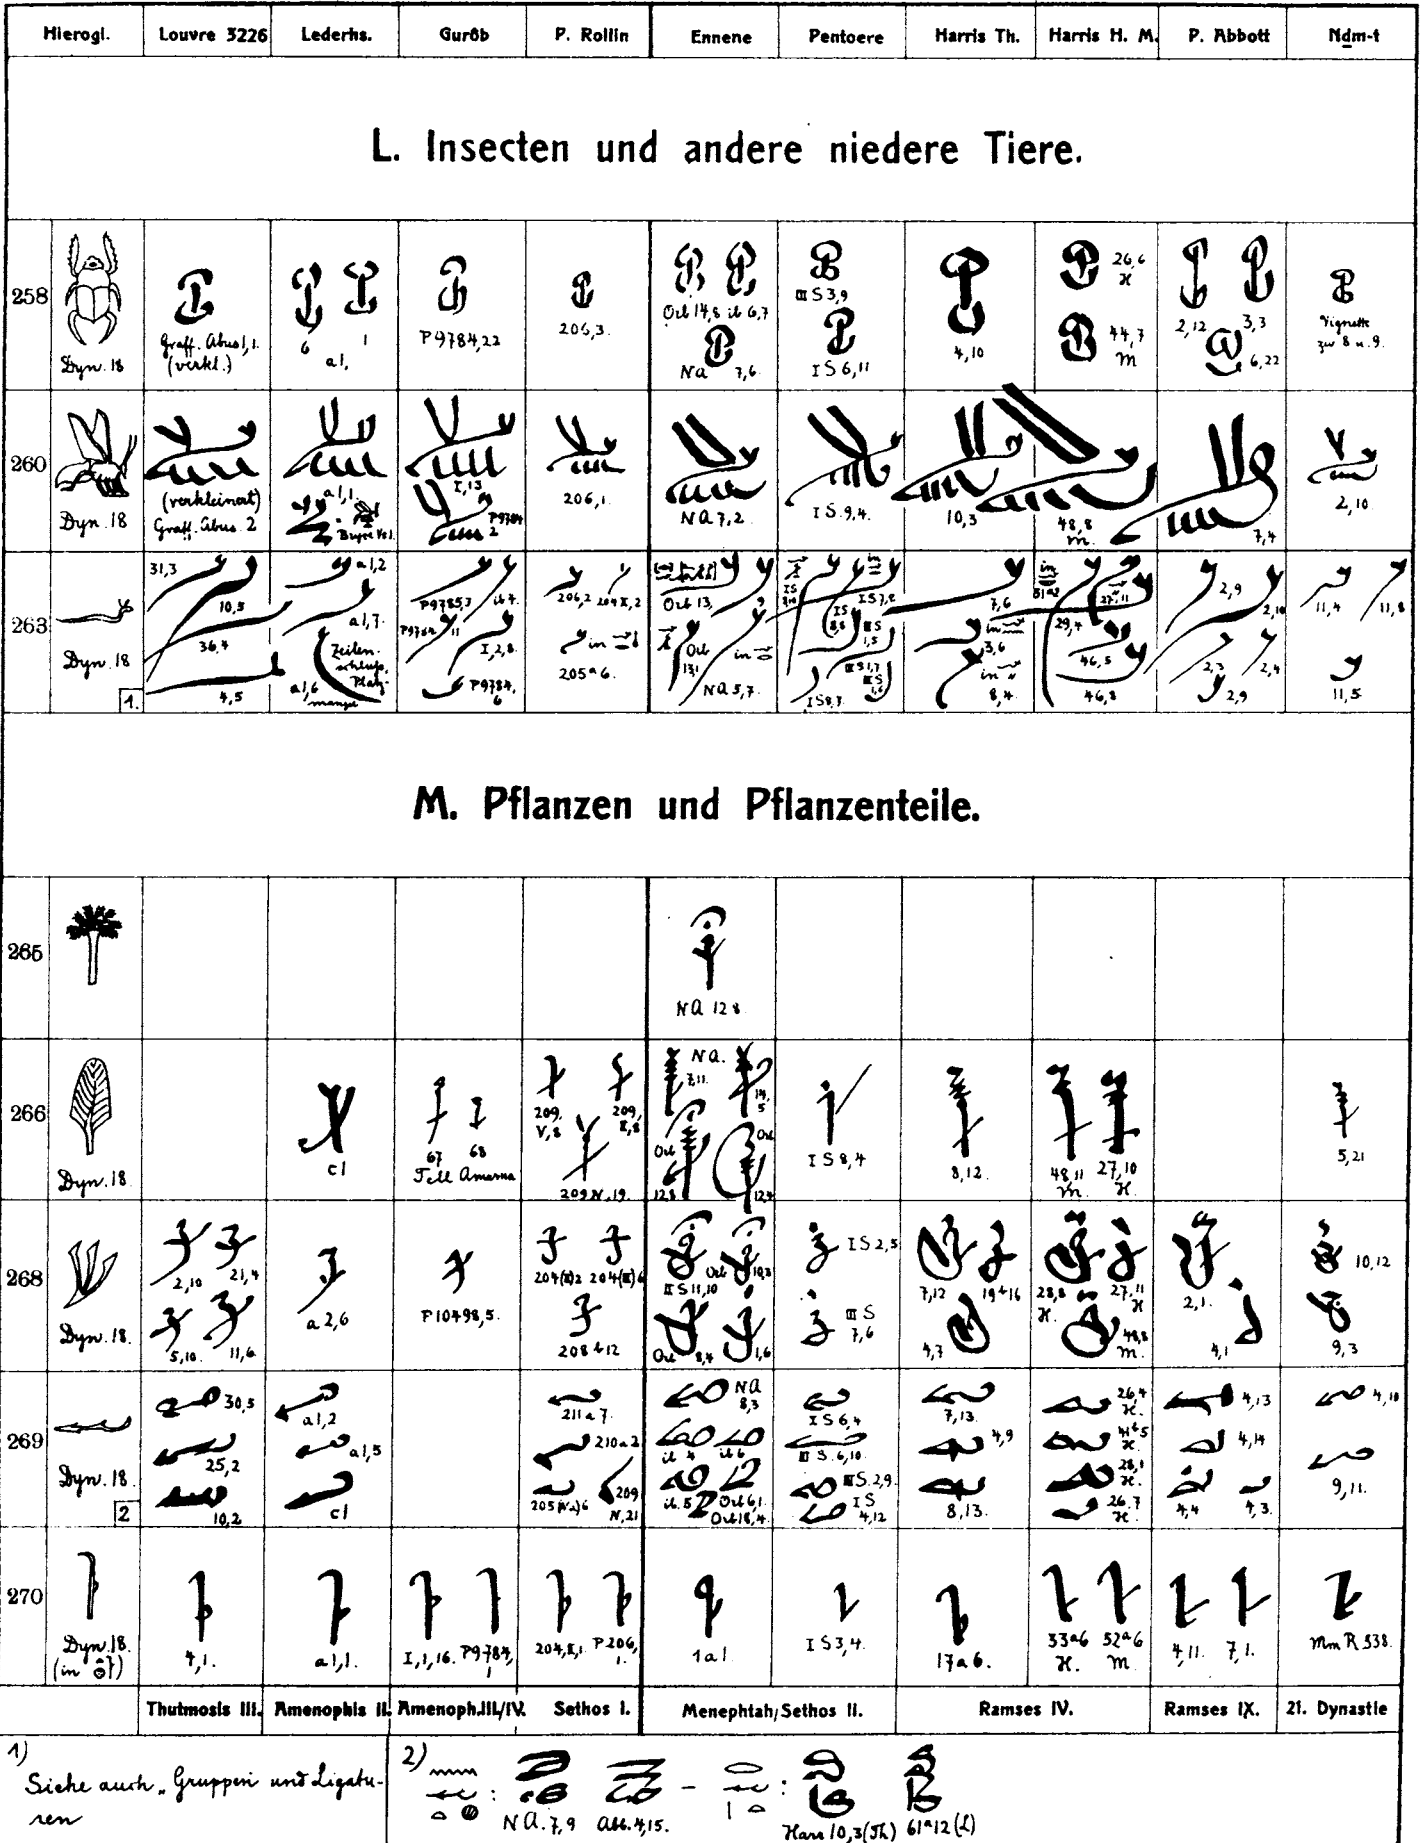 Hierogl. Louvre 3226 Lederhs. Gurôb P. Rollin Ennene Pentoere Harris Th. Harris H. M. P. Abbott Nḏm-t
L. Insecten und andere niedere Tiere.
258
Dyn. 18
Graff. Abus 1, 1.
(verkl.)
6 1
a1,
P 9784,22
206,3.
Orb 14,8 ib 6,7
NA 7,6.
III S 3,9
I S 6,11
4,10
26,6
H
44,7
M
2,12 3,3
6,22
Vignette
zw 8 u. 9.
260
Dyn. 18
(verkleinert)
Graff. Abus. 2
a1,1.
I,13
P9784
2
206,1.
NA 7,2.
I S. 9,4.
10,3
48,8
M.
7,4
2,10
263
Dyn. 18
1.
31,3
10,5
36,4
4,5
a1,2
a1,7.
a1,6
Zeilen-
schluss,
Platz-
mangel
P9785,3 ib 7.
P9784, 11
I,2,8.
P9784,
6
206,2
in
205a6.
Orb 13, 9
Orb
13,1
in
NA 5,7.
I S 7,2
IS
IS
III S
1,5
III S 1,7
III S
1,6
I S 8,7.
7,6
in
3,6
in
8,4.
in
27,11
29,4
46,5
46,8
2,9
2,10
2,3 2,4
2,9
11,4 11,8
11,5
M. Pflanzen und Pflanzenteile.
265
NA 12 8
266
Dyn. 18
c1
67 68
Tell Amarna
209, 209,
V,8 X,8
209 IV, 19.
NA.
7,11.
19,
5
Orb Orb
12,8 12,4
I S 8,4
8,12.
48,11 27,10
M. H.
5,21
268
Dyn. 18.
2,10 21,4
5,10. 11,6
a 2,6
P 10498,5.
208 b 12
III S 11,10
Orb 10,3
Orb 8,4 1,6
I S 2,5
III S
7,6
7,12 19b16
4,7
28,8 27,11
H. H
48,8
M.
2,1.
4,1
10,12
9,3
269
Dyn. 18
2
30,5
25,2
10,2
a1,2
a1,5
c1
211a7.
210a2
209
IV,21
NA
8,3
ib 4 ib 6
ib. 5 Orb 6,1
Orb 18,4
I S 6,4
III S. 6,10
III S. 2,9.
I S
4,12
7,13.
4,9
8,13.
26,4
H.
41b5
H.
28,1
H.
26,7
H.
4,13
4,14
4,4 4,3.
4,10
9,11.
270
Dyn. 18.
(in
4,1.
a1,1.
I,1,16. P9784,
1
204,I,1. P 206,
1.
1a1.
I S 3,4.
17a6.
33a6 52a6
H. M.
4,11. 7,1.
Mm R 538.
Thutmosis III. Amenophis II. Amenoph.III/IV. Sethos I. Menephtah/Sethos II. Ramses IV. Ramses IX. 21. Dynastie
1)
Siehe auch „Gruppen und Ligatu-
ren
2)
NA. 7,9 Abb. 4,15. Harr 10,3(Th) 61a12(L)